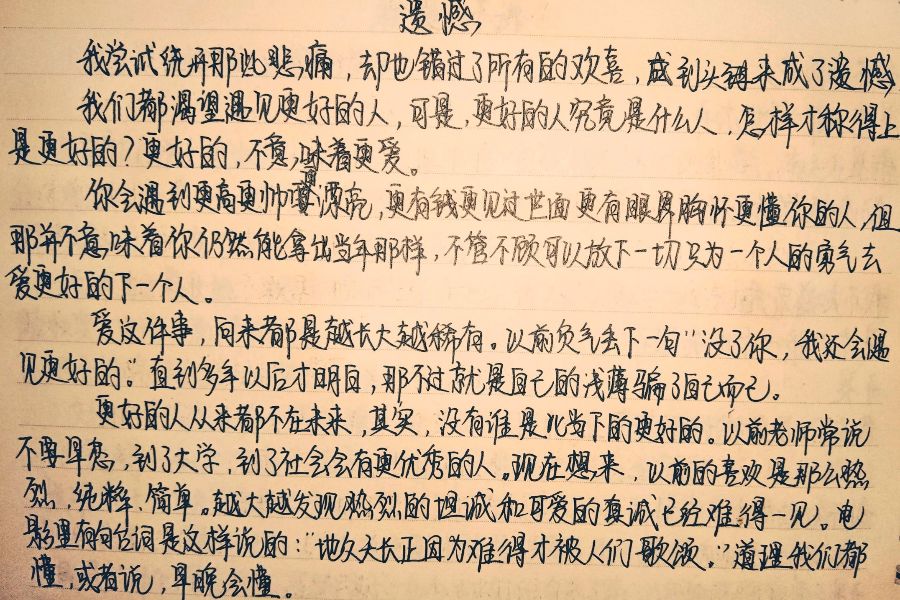 遗憾
我尝试绕开那些悲痛，却也错过了所有的欢喜，成到头越来成了遗憾
我们都渴望遇见更好的人，可是，更好的人究竟是什么人，怎样才称得上
是更好的？更好的，不意味着更爱。
你会遇到更高更帅更漂亮，更有钱更见过世面更有眼界胸怀更懂你的人，但
那并不意味着你仍然能拿出当年那样，不管不顾可以放下一切只为一个人的勇气去
爱更好的下一个人。
爱这件事，向来都是越长大越稀有。以前负气丢下一句“没了你，我还会遇
见更好的。”直到多年以后才明白，那不过就是自己的浅薄骗了自己而已。
更好的人从来都不在未来，其实，没有谁是比当下的更好的。以前老师常说
不要早恋，到了大学，到了社会会有更优秀的人。现在想来，以前的喜欢是那么热
烈，纯粹，简单。越大越发现热烈的坦诚和可爱的真诚已经难得一见。电
影里有句台词是这样说的：“地久天长正因为难得才被人们歌颂。”道理我们都
懂，或者说，早晚会懂。